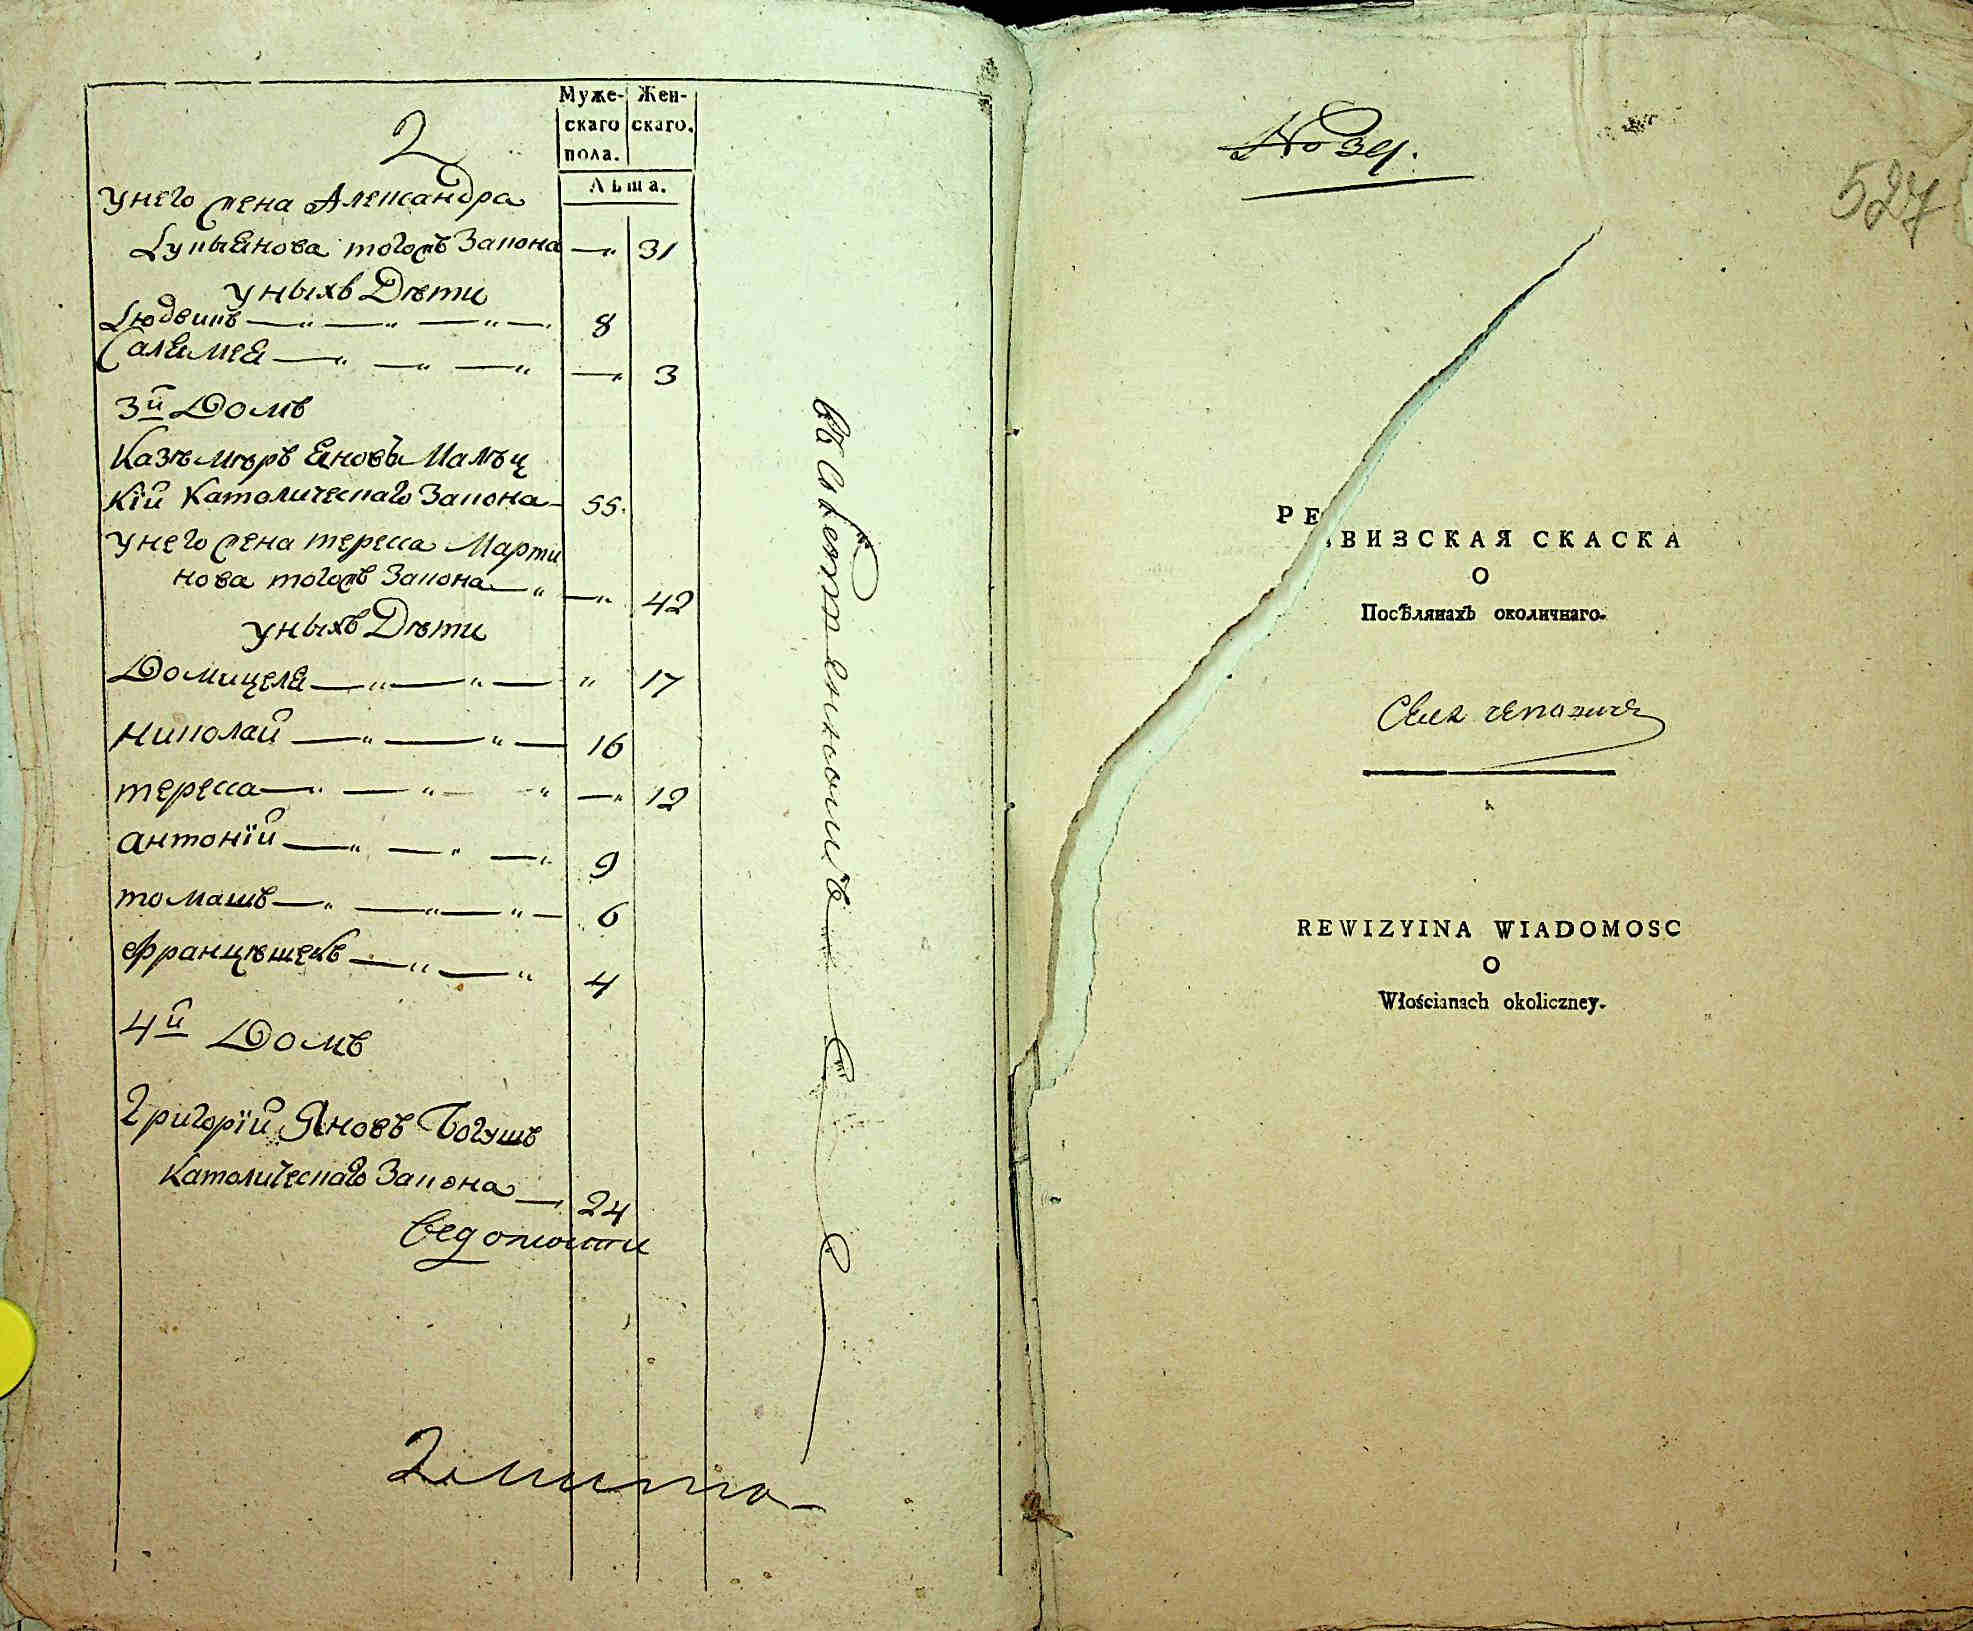 Муже- Жен-
скаго скаго.
пола.
Лѣта.
2
унего жена Александра
Лукьянова тогожъ Закона —„ 31
уныхъ Дѣти
Людвикъ —„ —„ —„— 8
Саламея —„ —„ —„ —„ 3
3й Домъ
Казѣмѣръ Яновъ
кій Католическаго Закона — 55.
унего жена тересса Марти
нова тогожъ Закона —„ —„ 42
уныхъ Дѣти
Домицеля —„ —„ — „ 17
Николай —„ —„ — 16
тересса —„ —„ „ —„ 12
антоній —„ —„ —„ 9
томашъ —„ —„ —„ — 6
Францѣшекъ —„ —„ 4
4й Домъ
Григорій Яновъ Богушъ
Католическаго Закона — 24
No 34.
527
РЕВИЗСКАЯ СКАСКА
О
ПосѢлянахЪ околичнаго.
REWIZYINA WIADOMOSC
O
Włościanach okoliczney.